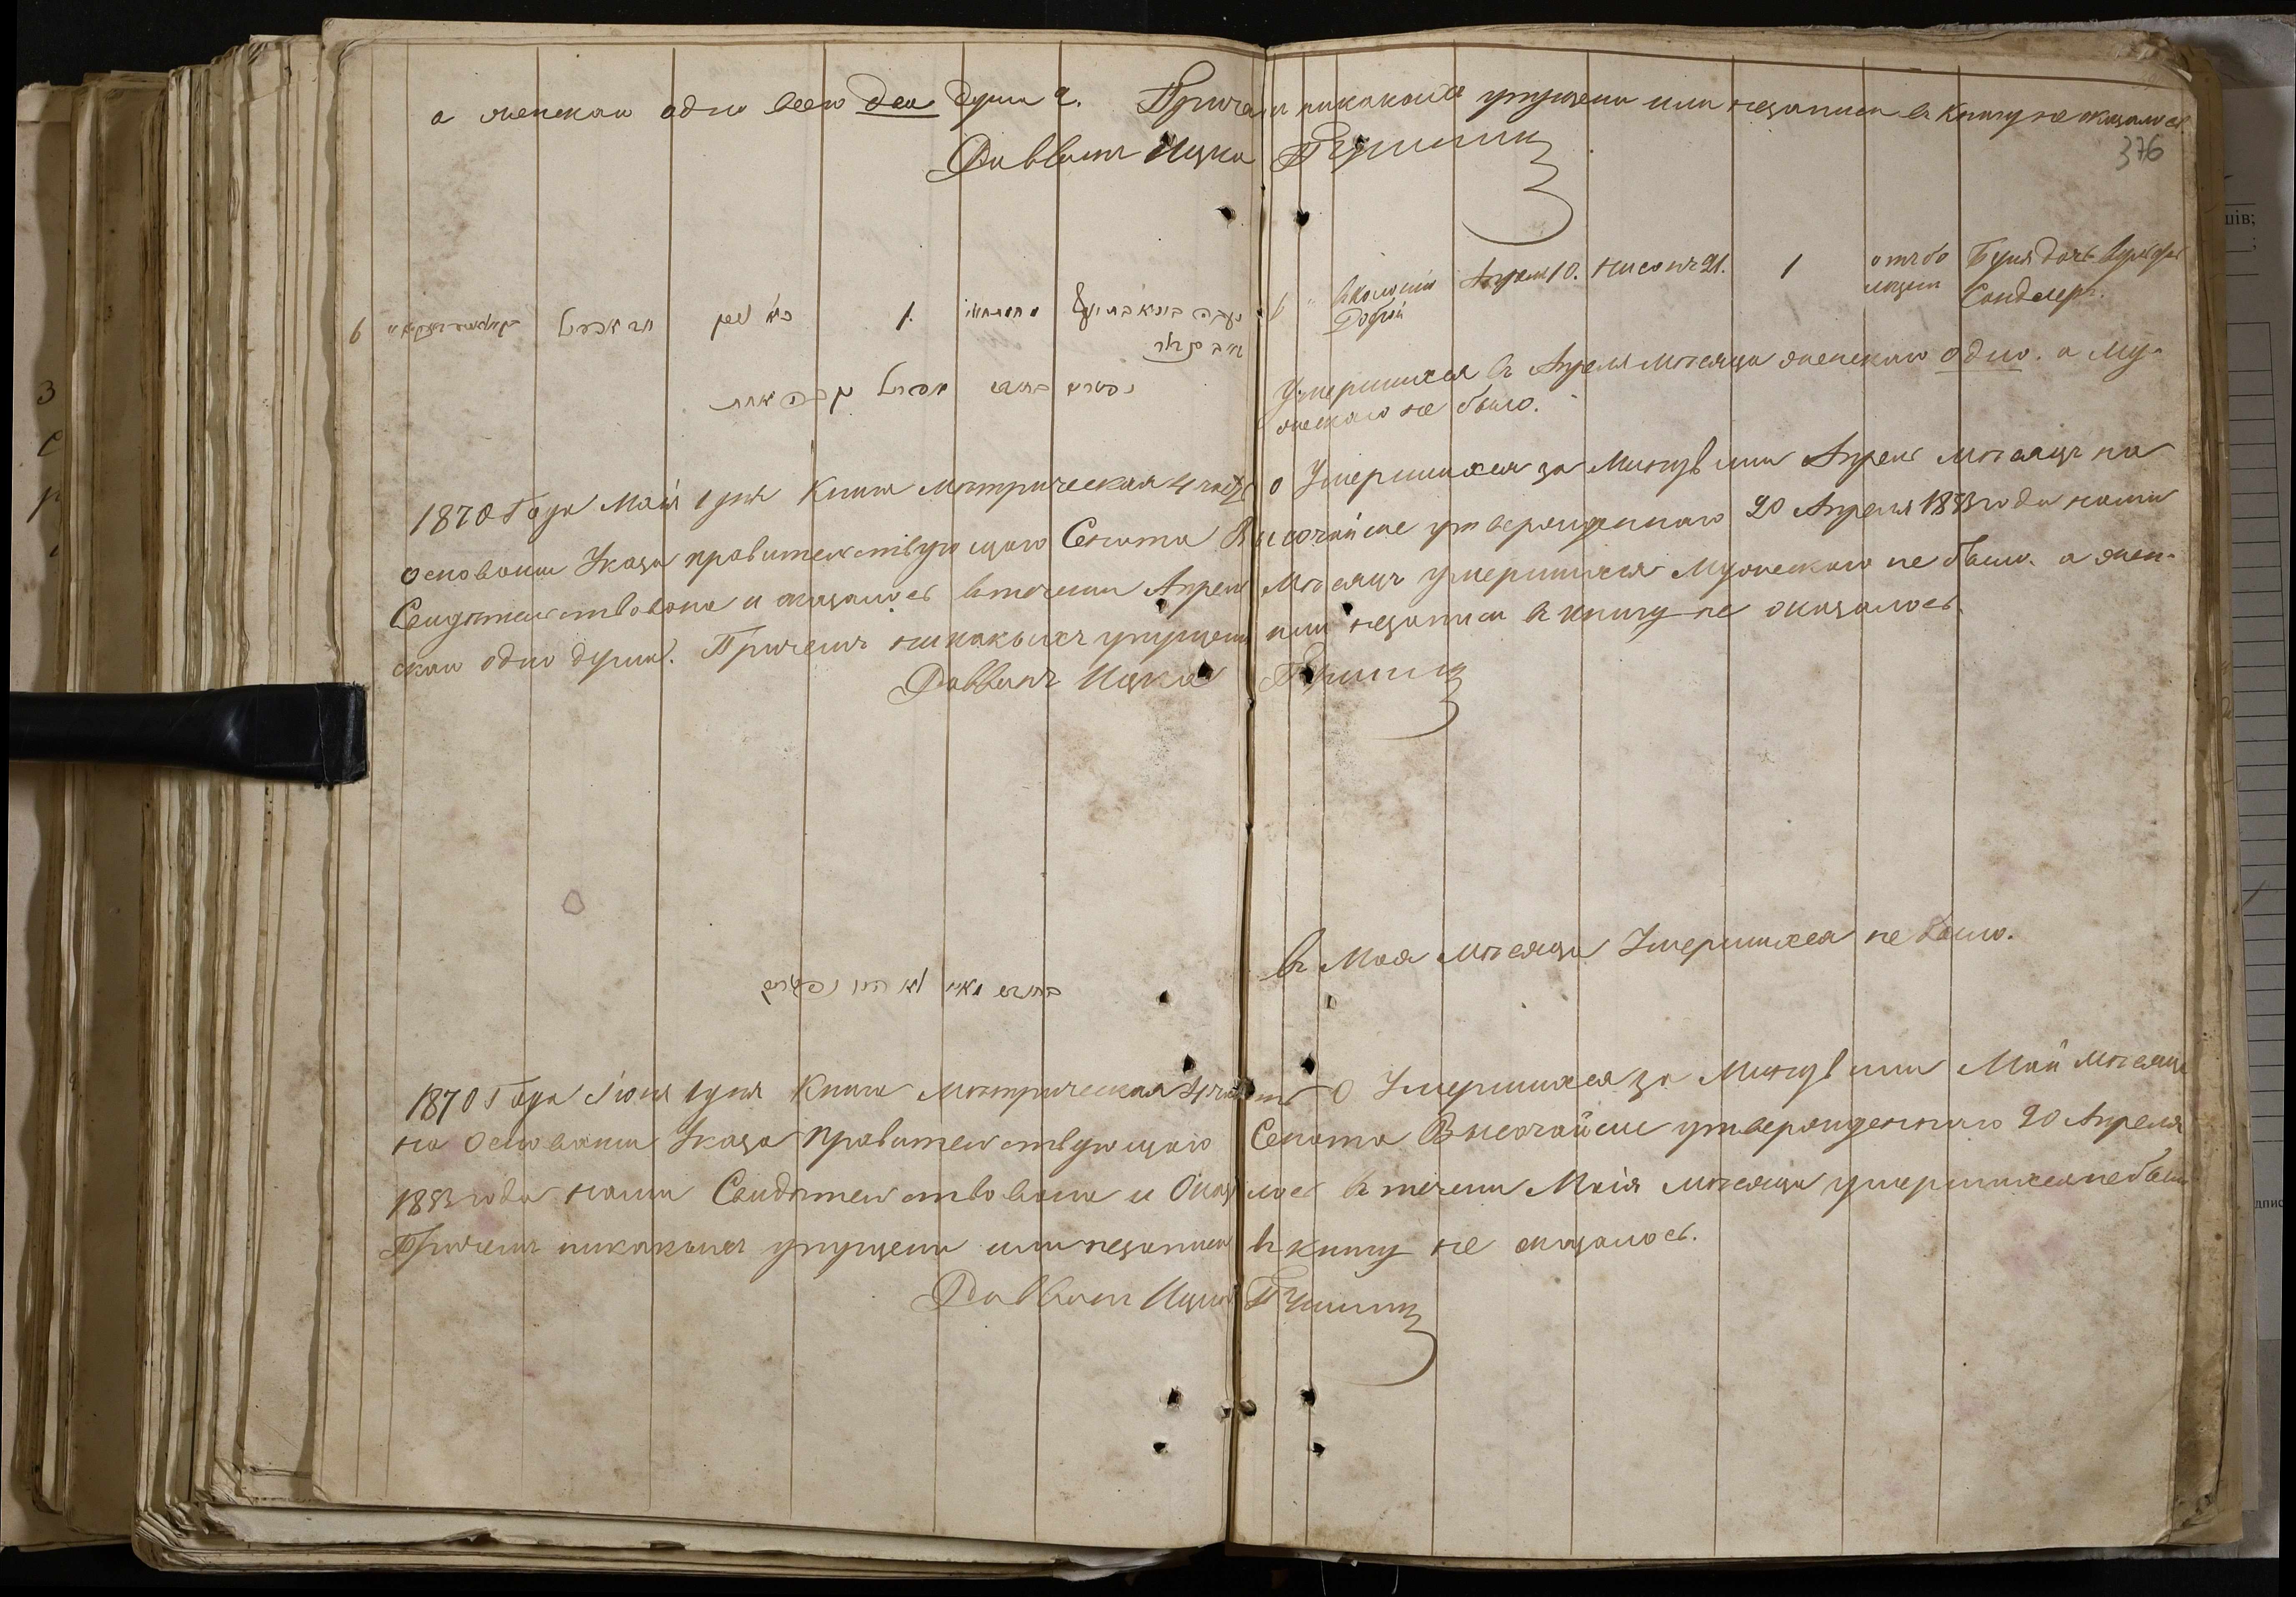 а женскаго одно всего два души 2. Причем никаких упущени или незаписи в книгу не оказалось
Раввин Ицко
376
6 в колонии Апреля 10. нисонъ 21. 1 отъ бо Буня дочь
Доброй лезни Сандлеръ.
6 1.
נפטרה בחדש אפריל נקבה אחת
Умершихся въ Апреля месяца женскаго одно. а му-
жескаго не было.
1870 Года Маiя 1 дня Книга метрическая 4 часть о Умершихся за минувши Апрель месяцъ на
основани Указа правительствующаго Сената Высочайше утвержденнаго 20 Апреля 1883 года нами
Свидетельствована и оказалось втечени Апрель Месяцъ умершихся Мужескаго не было. а жен-
скаго одно душа. Причемъ никакыхъ упущени или незаписи в книгу не оказалось.
Раввинъ Ицко
בחדש מאיי לא היו נפטרים
въ Мая месяца Умершихся не было.
1870 Года Iюня 1 дня Книга метрическая 4 часть О Умершихся за Минувши Май месяца
на Основани Указа правительствующаго Сената Высочайше утвержденнаго 20 Апреля
1883 года нами Свидетельствована и Оказалось втечени Маiя месяца умершихся не было
Причемъ никакыхъ упущени или незаписи въ книгу не оказалось.
Раввинъ Ицко